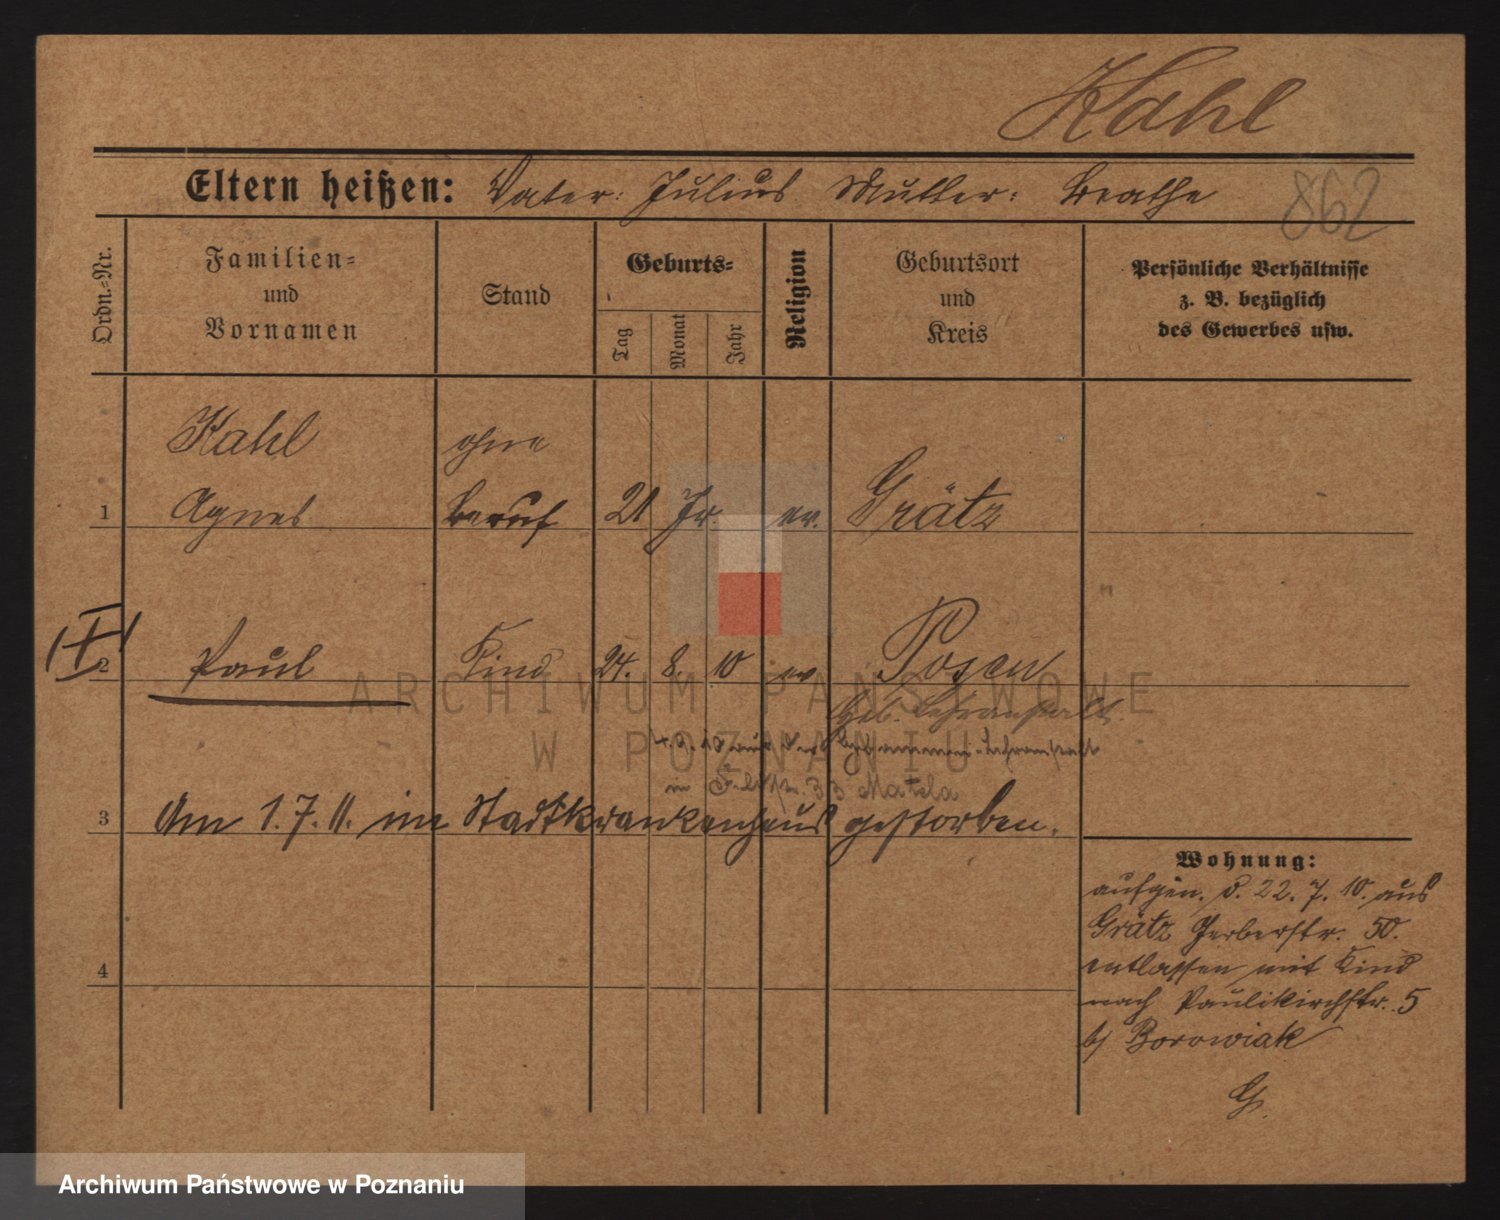 Kahl
Eltern heißen: Vater: Julius Mutter: Beathe
862
Ordn.-Nr.
Familien-
und
Vornamen
Stand
Geburts-
Tag
Monat
Jahr
Religion
Geburtsort
und
Kreis
Persönliche Verhältnisse
z. B. bezüglich
des Gewerbes usw.
Kahl ohne
1 Agnes Beruf 21 Jr. ev. Grätz
2 Paul Kind 24. 8. 10 ev Posen
Heb. Lehranstalt
aus der Hebammen-Lehranstalt
in 33 Matela
3 Am 1.7.11. im Stadtkrankenhaus gestorben.
Wohnung:
aufgen. d. 22. 7. 10. aus
Grätz Gerberstr. 50.
entlassen mit Kind
nach Paulikirchstr. 5
b/ Borowiak
G.
4
ARCHIWUM PAŃSTWOWE
W POZNANIU
Archiwum Państwowe w Poznaniu